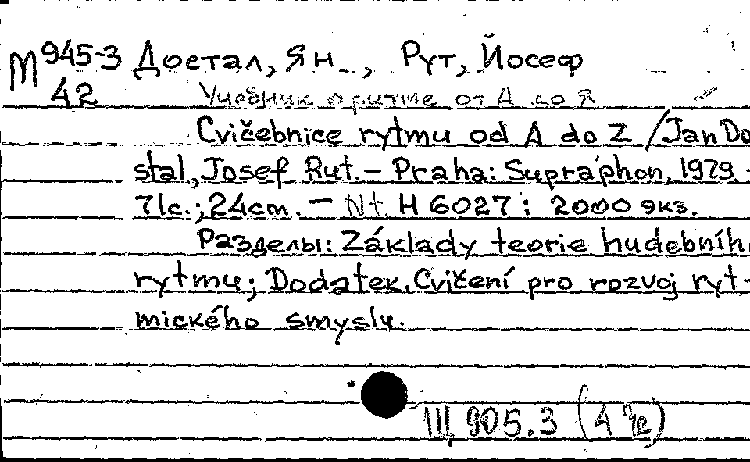 М 945-3 Достал, Ян., Рут, Йосеф
42 Учебник о ритме от А до Я
Cvičebnice rytmu od A do Z / Jan Do
stal, Josef Rut. – Praha: Supraphon, 1979 –
71с.; 24cm. – Nt. H 6027 : 2000 экз.
Разделы: Základy teorie hudebníh
rytmu; Dodatek. Cvičení pro rozvoj ryt-
mického smyslu.
III 905.3 (4